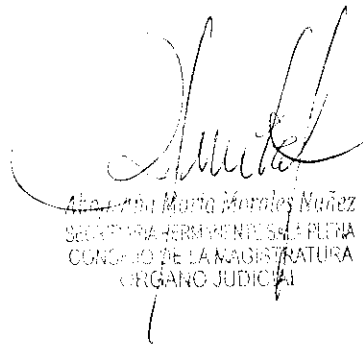 María Morales Nuñez
SECRETARIA PERMANENTE SALA PLENA
CONSEJO DE LA MAGISTRATURA
ORGANO JUDICIAL